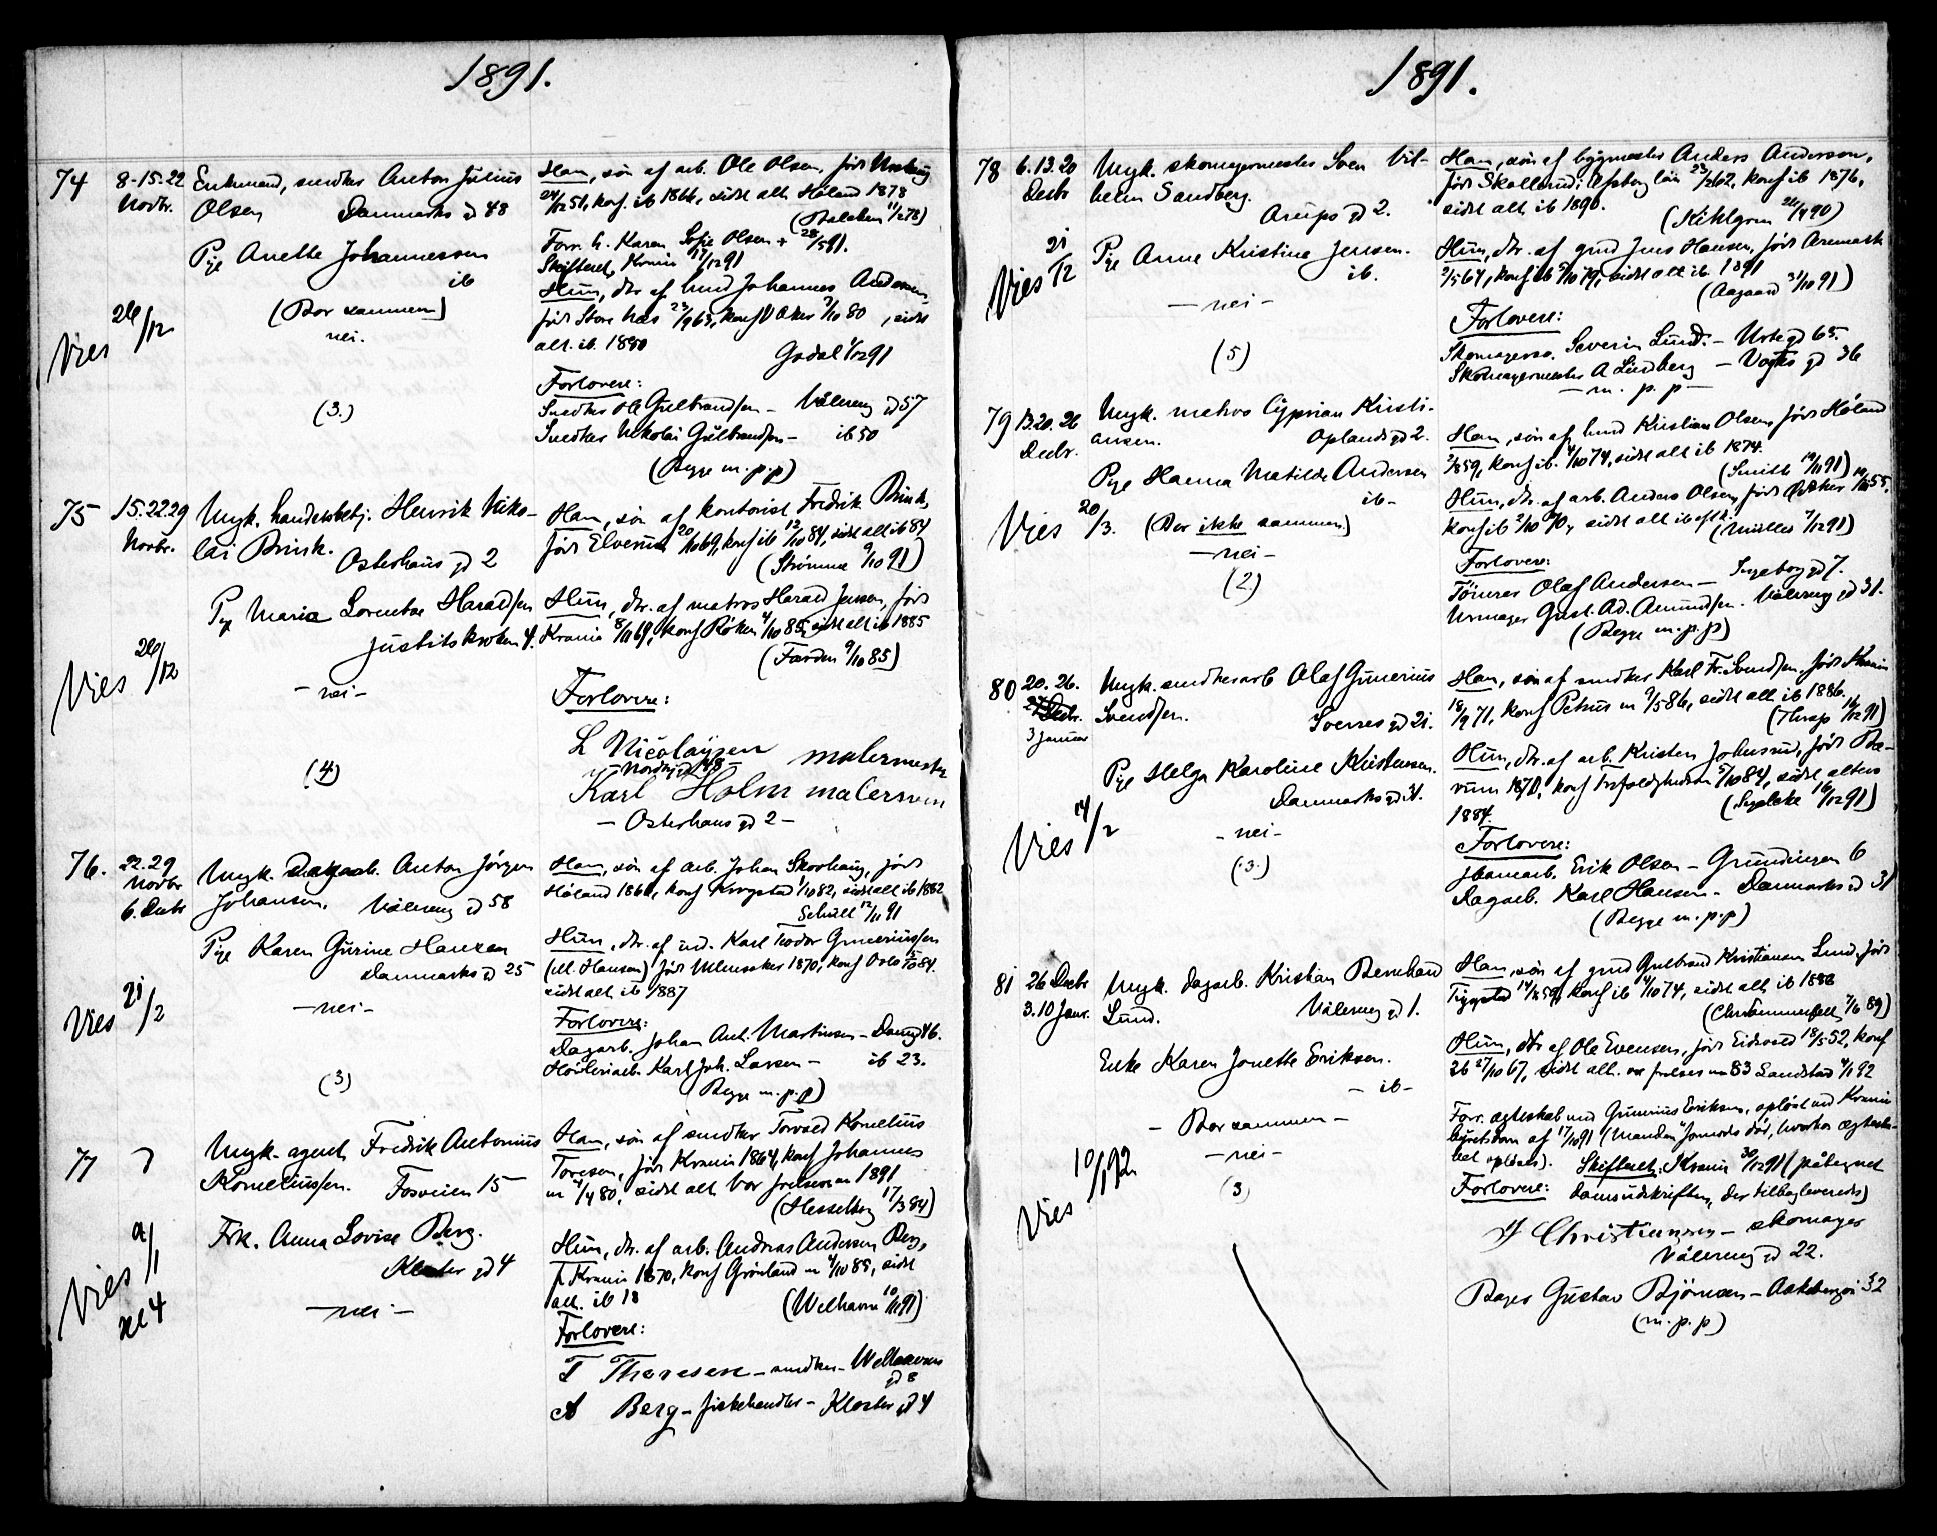 1891.
74 8-15.22 Novbr.
Enkemand, snedker Anton Julius
Olsen Danmarks gd 48
Pige Anette Johannessen
ib
(Bor sammen)
nei.
Vies 26/12
(3.)
Han, søn af arb. Ole Olsen, født
konf. ib 1866, sidst alt. Høland 1878
Forr. h. Karen Sofie Olsen + 28/5 91.
Skifteret, Krania 17/12 91
Hun, dtr. af husm Johannes Andersen,
født Store 23/9 63, konf V Aker 3/10 80, sidst
alt. ib. 1890
1/12 91
Forlovere:
Snedker Ole Gulbrandsen - Vålereng gd 57
Snedker Nikolai Gulbrandsen - ib 50
(Begge m.p.p)
75 15.22.29 Novbr.
Ungk. handelsbetj. Henrik Niko-
lai Brink.
Osterhaus gd 2
Pige Maria Lorentse Haraldsen
Justitskroken 4.
Vies 26/12
- nei -
(4)
Han, søn af kontorist Fredrik Brink,
født Elverum 20/10 69, konf ib 12/10 84, sidst alt ib 84
(Strömme 9/10 91)
Hun, dtr. af matros Harald Jensen, født
Krania 8/11 69, konf Røken 4/10 85, sidst alt ib 1885
(Farden 9/10 85)
Forlovere:
L Nicolaysen malermester
- Nordbygd 48 -
Karl Holm malersven
- Osterhaus gd 2 -
76. 22.29 Novbr
6. Decbr
Ungk. Dagarb. Anton Jörgen
Johansen. Vålereng gd 58
Pige Karen Gurine Hansen
Danmarks gd 25
- nei -
Vies 21/2
(3)
Han, søn af arb. Johan Skovhaug, født
Høland 1866, konf Krogstad 1/10 82, sidst alt ib 1882
Schult 12/11 91
Hun, dtr. af Karl Teodor Guneriussen
(M. Hansen) født Ullensaker 1870, konf Oslo 84.
sidst alt ib 1887
Forlovere:
Dagarb. Johan Ant. Martinsen - Danmgd 46.
Høvleriarb. Karl Joh. Larsen - ib 23.
(Begge m.p.p)
77
Ungk. agent Fredrik Antonius
Korneliussen. Fosveien 15
Frk. Anna Lovise Berg.
Kloster gd 4
- nei -
Vies 9/1
kl 4
Han, søn af snedker Torvald Kornelius
Toresen, født Krania 1864, konf Johannes
m 4/4 80, sidst alt Vor frelsers m 1891
(Hesselberg 17/3 84)
Hun, dtr. af arb. Andreas Andersen Berg,
f. Krania 1870, konf Grønland m 4/10 85, sidst
alt. ib 18
(Welhaven 10/11 91)
Forlovere:
T Thoresen - snedker - Welhavens
gd 8
A Berg - fiskehandler - Kloster gd 4
1891.
78 6.13.20
Decbr
Ungk. skomagermester Sven Vil-
helm Sandberg.
Arups gd 2.
Pige Anne Kristine Jensen.
ib.
- nei -
Vies 21/12
(5)
Han, søn af bygmester Anders Anderson,
født Skallerud i Elfsborg län 23/2 62, konf ib 1876,
sidst alt ib 1890.
(Kihlgren 26/4 90)
Hun, dtr. af grd Jens Hansen, født Aremark
2/5 64, konf ib 5/10 79, sidst alt ib 1891
(Aagaard 31/10 91)
Forlovere:
Skomagersv. Severin Lund. - Urtegd 65.
Skomagermester A Lindberg - Vogts gd 36
- m.p.p -
79 13.20.26
Decbr.
Ungk. matros Cyprian Kristi-
ansen. Oplandsgd 2.
Pige Hanna Matilde Andersen
ib -
Vies 20/3.
(Bor ikke sammen)
- nei -
(2)
Han, søn af husm Kristian Olsen, født Høland
3/8 59, konf ib. 4/10 74, sidst alt ib 1874.
(Smith 14/10 91)
Hun, dtr. af arb. Anders Olsen, født 55,
konf ib 2/10 70, sidst alt ib
(Müller 7/12 91)
Forlovere:
Olaf Andersen - Ingeborggd 7.
Urmager Gust. Ad. Amundsen. Vålereng gd 31.
(Begge m.p.p)
80 20.26.
27 Decbr.
3 Januar
Ungk. snedkerarb Olaf Gunerius
Svendsen. Sverresgd 21.
Pige Helga Karoline Kristensen.
Danmarksgd 31.
- nei -
Vies 14/2
(3.)
Han, søn af snedker Karl Fr. Svendsen, født Krania
18/9 71, konf Petrus m 9/5 86, sidst alt ib 1886.
(Thrap 14/12 91)
Hun, dtr. af arb. Kristen Johnsrud, født Bæ-
rum 1870, konf Trefoldigheden 5/10 84, sidst alters
1884. 16/12 91)
Forlovere:
Erik Olsen - Grundingen 6
Dagarb. Karl Hansen - Danmarks gd 31
(Begge m.p.p)
81 26 Decbr
3.10 Janr.
Ungk. dagarb. Kristian Bernhard
Lund. Vålereng gd 1.
Enke Karen Jonette Eriksen.
- ib -
- Bor sammen -
- nei -
Vies 10/1 92
(3)
Han, søn af grd Gulbrand Kristiansen Lund, født
14/8 59, konf ib 4/10 74, sidst alt ib 1888
7/6 89)
Hun, dtr af Ole Evensen, født Eidsvold 18/5 52, konf
ib 27/10 67, sidst alt. vor frelsers m 83 Landstad 4/1 92
Forr. ægteskab med Gunerius Eriksen, opløst ved Krania
byretsdom af 17/10 91 (Manden formodes død, hvorfor ægteska-
bet opløses). Skifteret, Krania 30/12 91 (påtegnet
Forlovere: domsudskriften, der tilbageleveredes)
Christiansen - skomager
Vålereng gd 22.
Bager Gustav Björnsen - Aakebergvn 32
(m.p.p)